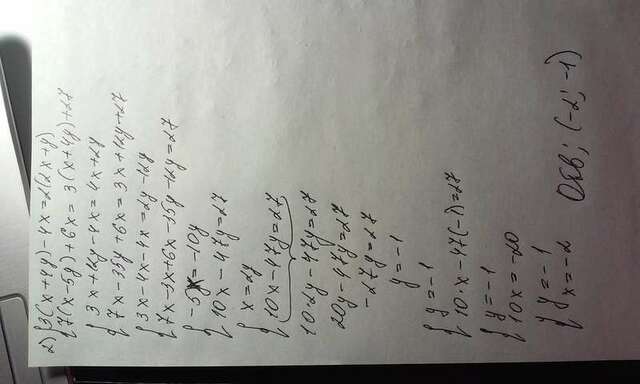 2) { 3(x+4y)-4x=2(2x+y)
7(x-5y)+6x=3(x+4y)+27
{ 3x+12y-4x=4x+2y
7x-35y+6x=3x+12y+27
{ 3x-4x-4x=2y-12y
7x-3x+6x-35y-12y=27
{ -5x=-10y
10x-47y=27
{ x=2y
10x-47y=27
10·2y-47y=27
20y-47y=27
-27y=27
y=-1
{ y=-1
10·x-47(-1)=27
{ y=-1
10x=-20
{ y=-1
x=-2
Отв; (-2; -1)